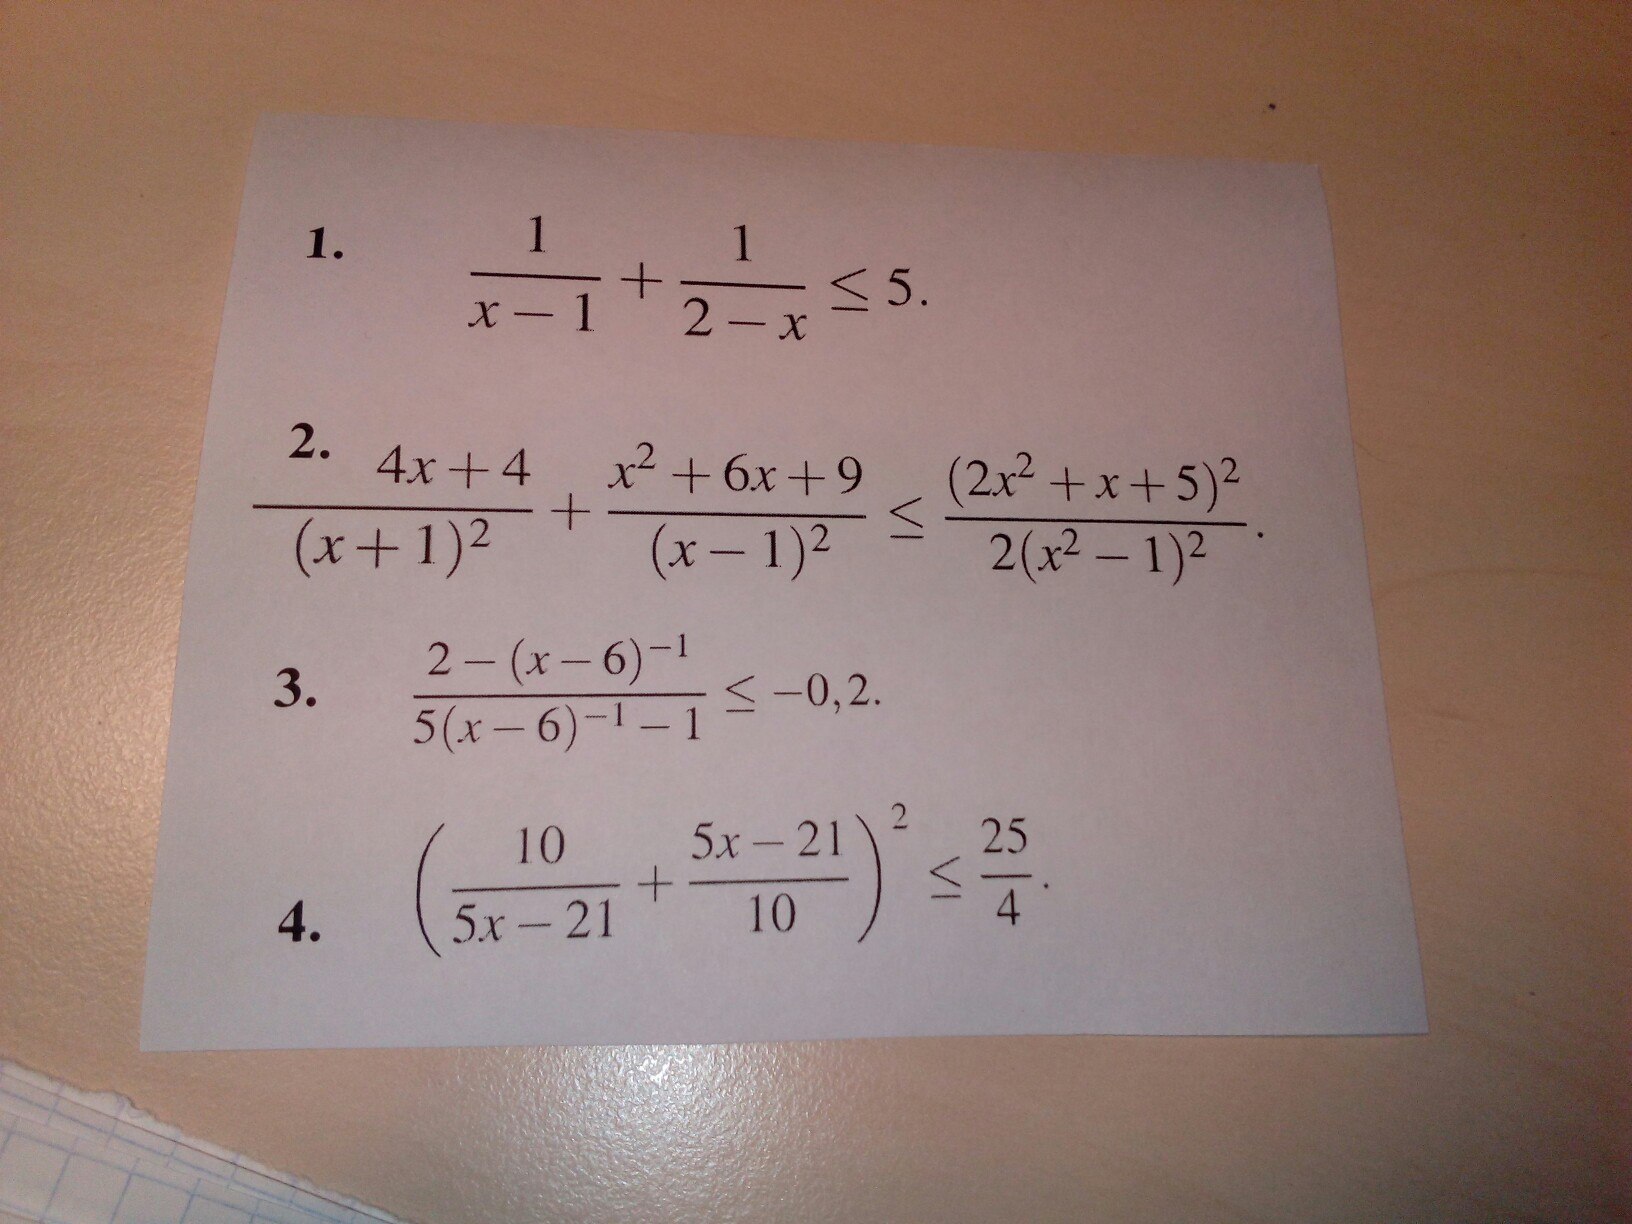 1. \frac{1}{x-1} + \frac{1}{2-x} \leq 5.
2. \frac{4x+4}{(x+1)^2} + \frac{x^2+6x+9}{(x-1)^2} \leq \frac{(2x^2+x+5)^2}{2(x^2-1)^2}.
3. \frac{2-(x-6)^{-1}}{5(x-6)^{-1}-1} \leq -0,2.
4. \left(\frac{10}{5x-21} + \frac{5x-21}{10}\right)^2 \leq \frac{25}{4}.